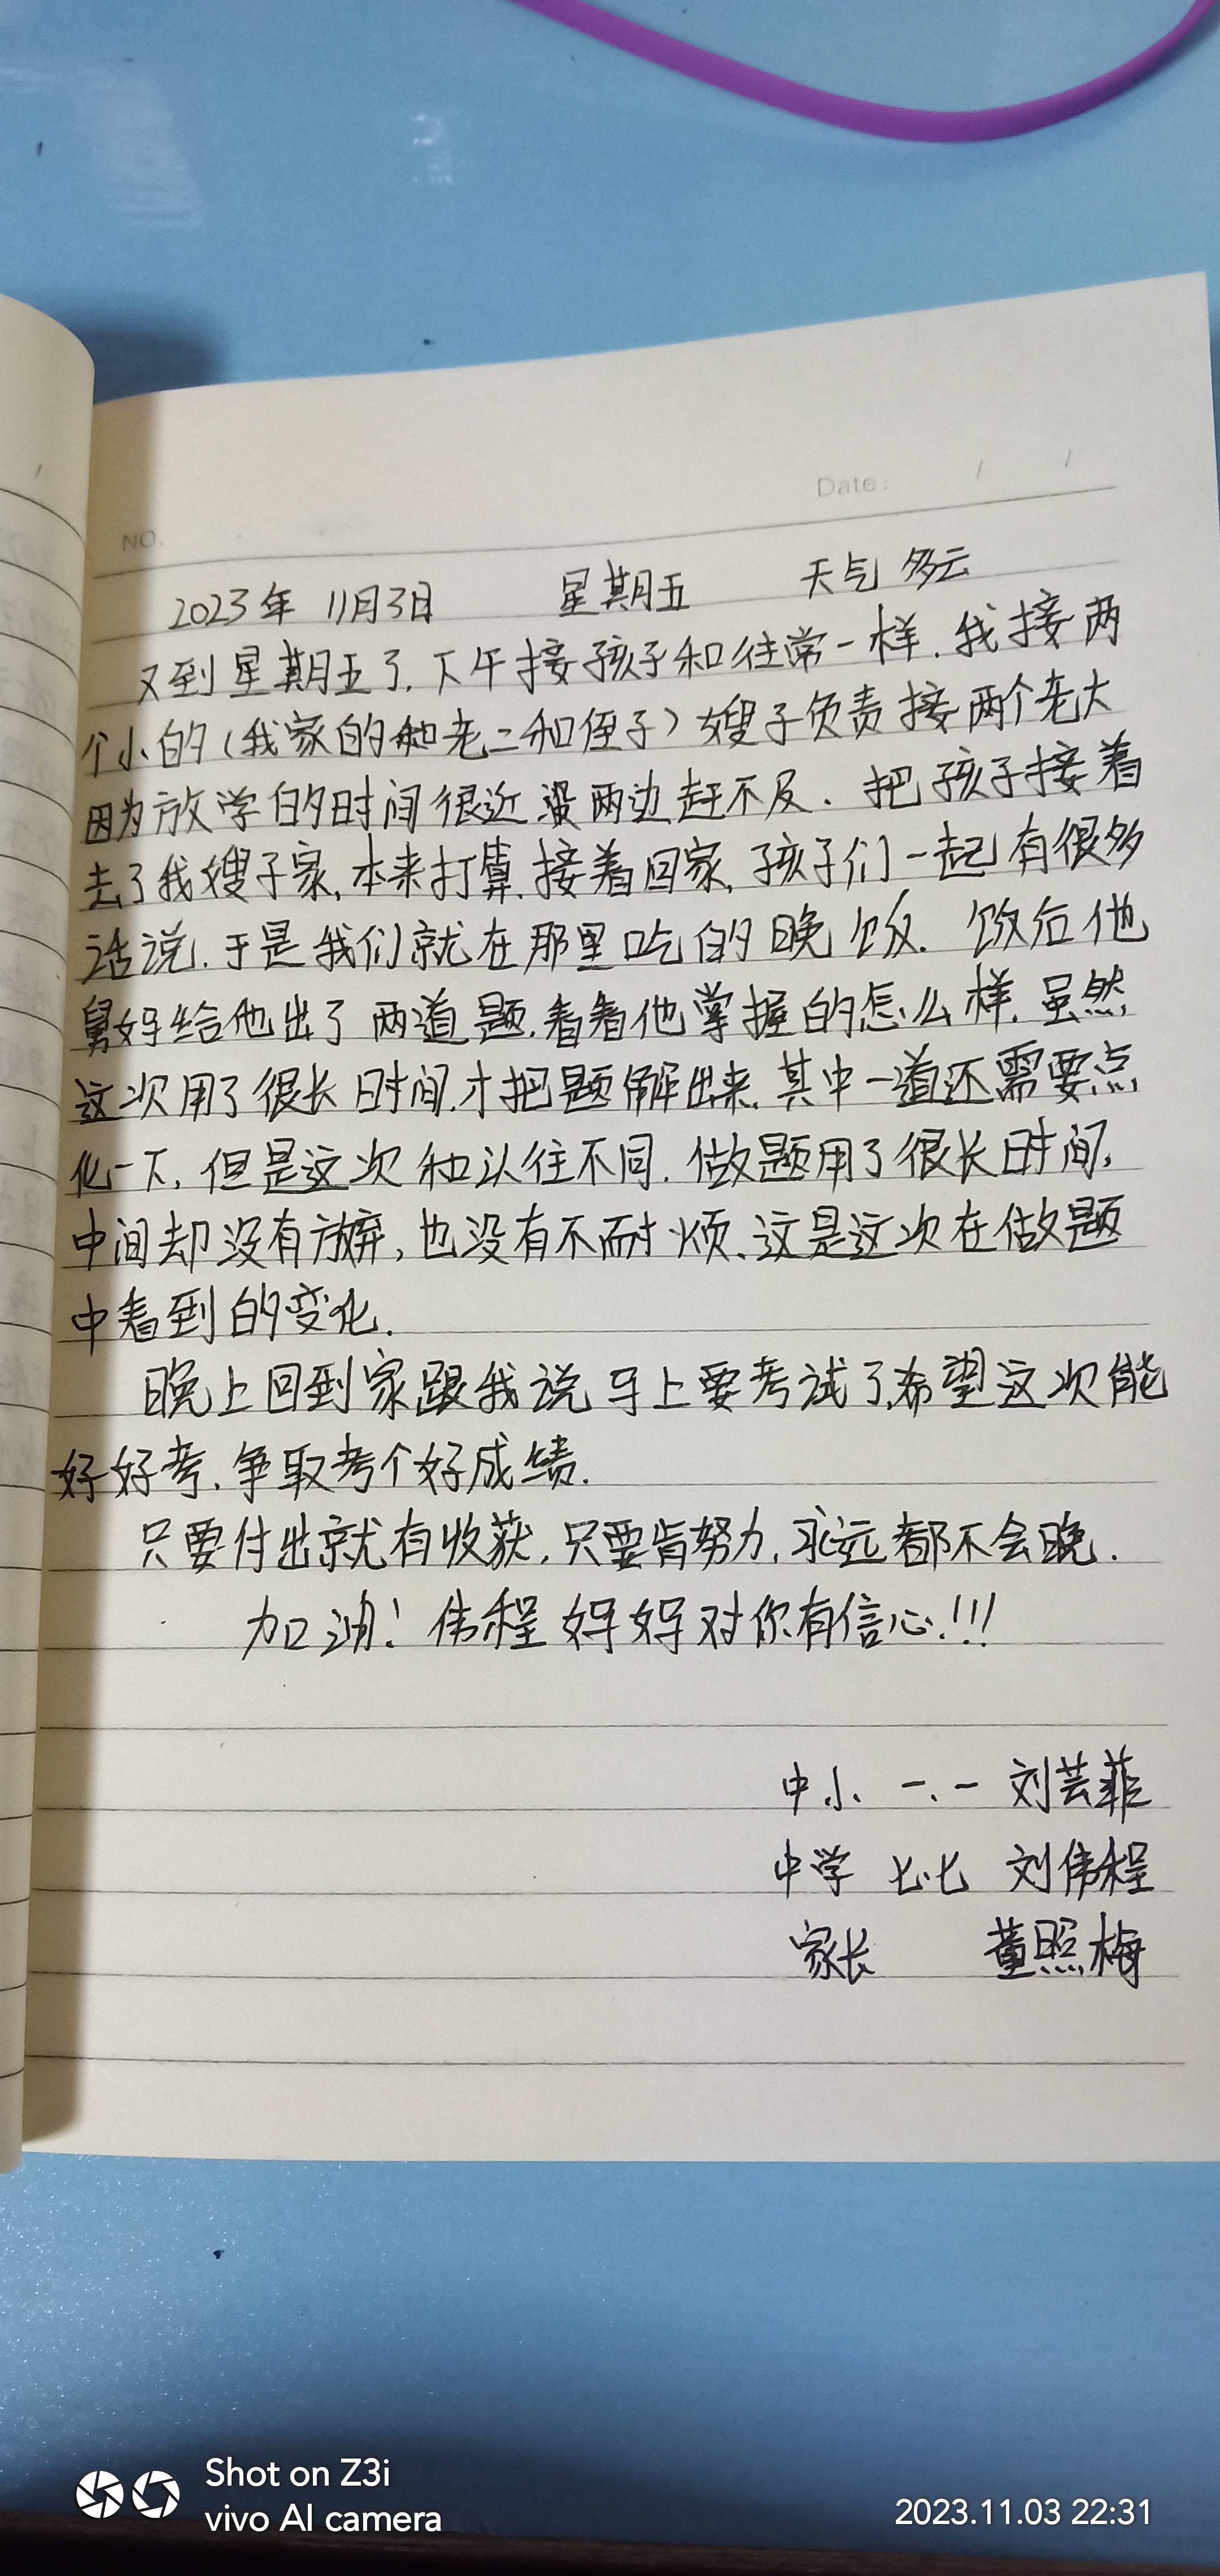 Date: / /
NO.
2023年 11月3日 星期五 天气 多云
又到星期五了.下午接孩子和往常一样.我接两
个小的(我家的老二和侄子)嫂子负责接两个老大
因为放学的时间很近 两边赶不及.把孩子接着
去了我嫂子家,本来打算接着回家,孩子们一起有很多
话说.于是我们就在那里吃的晚饭.饭后他
舅妈给他出了两道题.看看他掌握的怎么样.虽然
这次用了很长时间.才把题解出来.其中一道还需要点
化一下,但是这次和以往不同.做题用了很长时间,
中间却没有放弃,也没有不耐烦.这是这次在做题
中看到的变化.
晚上回到家跟我说马上要考试了,希望这次能
好好考.争取考个好成绩.
只要付出就有收获.只要肯努力,永远都不会晚.
加油!伟程 妈妈对你有信心!!!
中小 一.一 刘芸菲
中学 七.七 刘伟程
家长 董照梅
Shot on Z3i
vivo AI camera
2023.11.03 22:31